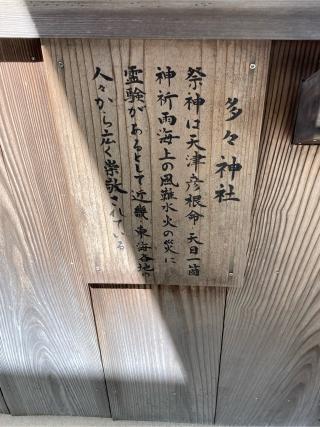 多々神社
祭神は天津彦根命 天目一箇
神 祈雨 海上の風難 水火の災に
霊験があるとして 近畿 東海各地の
人々から広く崇敬されている